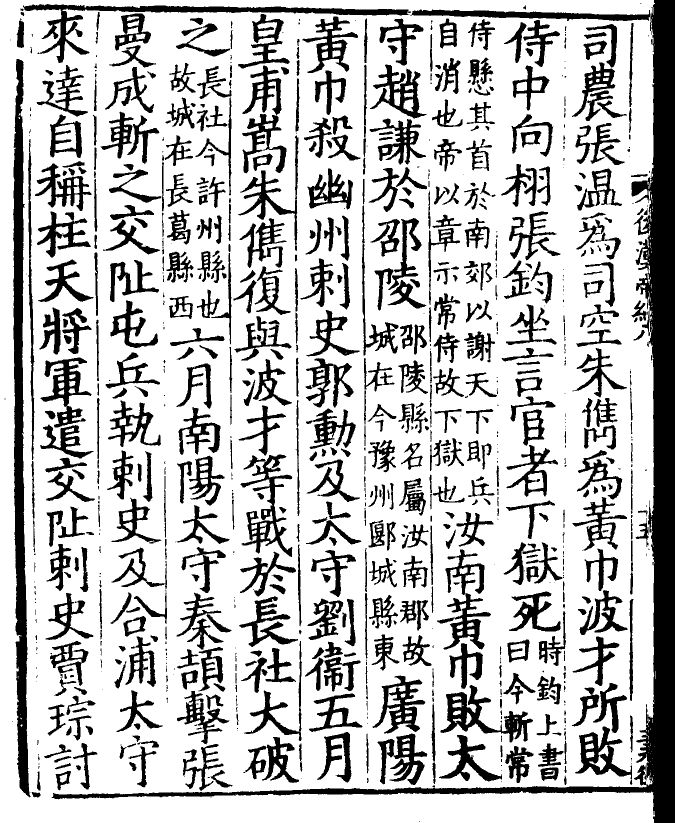 後漢帝紀八
司農張温爲司空朱儁爲黃巾波才所敗
侍中向栩張鈞坐言官者下獄死時鈞上書曰今斬常
侍懸其首於南郊以謝天下即兵自消也帝以章示常侍故下獄也汝南黃巾敗太
守趙謙於邵陵邵陵縣名屬汝南郡故城在今豫州郾城縣東廣陽
黃巾殺幽州刺史郭勳及太守劉衞五月
皇甫嵩朱儁復與波才等戰於長社大破
之長社今許州縣也故城在長葛縣西六月南陽太守秦頡擊張
曼成斬之交阯屯兵執刺史及合浦太守
來達自稱柱天將軍遣交阯刺史賈琮討